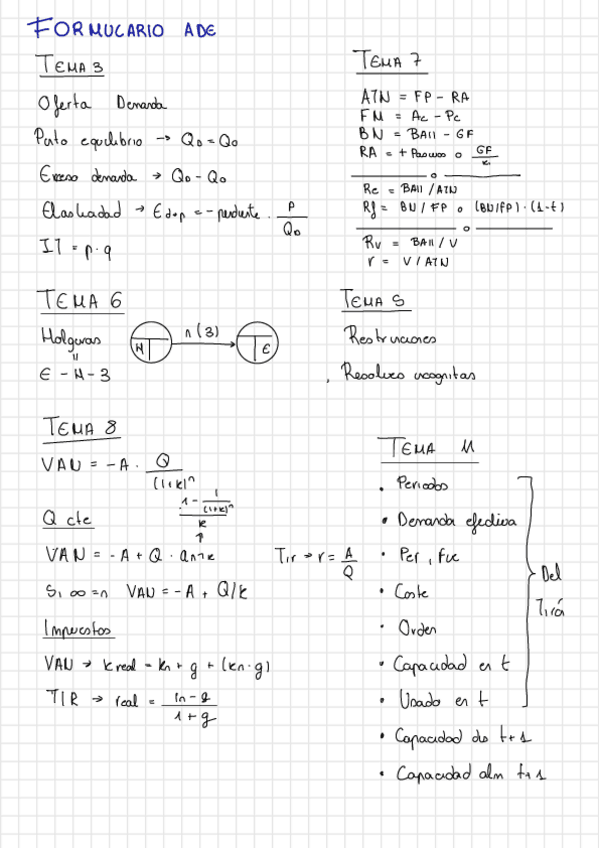 FORMUCARIO ADE
TEMA 3
Oferta Demanda
Punto equilibrio → QD = QO
Exceso demanda → QD - QO
Elasticidad → Edp = - pendiente · P / QD
IT = p · q
TEMA 7
ATN = FP - RA
FM = Ac - Pc
BN = BAII - GF
RA = + Pasivos o GF / Ki
o
Re = BAII / ATN
Rf = BN / FP o (BN/FP) · (1-t)
o
Rv = BAII / V
r = V / ATN
TEMA 6
Holguras
=
E - H - 3
H n (3) E
TEMA 5
Restricciones
Resolver incognitas
TEMA 8
VAN = - A · Q / (1+K)^n
Q cte
1 - 1/(1+k)^n / k
↑
VAN = - A + Q · an¬k
Tir → r = A / Q
Si ∞=n VAN = - A + Q/k
Impuestos
VAN → k real = kn + g + (kn · g)
TIR → real = rn - g / 1 + g
TEMA 11
• Periodos
• Demanda efectiva
• Per, fue
• Coste
• Orden
• Capacidad en t
• Usado en t
Del
Tirá
• Capacidad do t+1
• Capacidad alm t+1